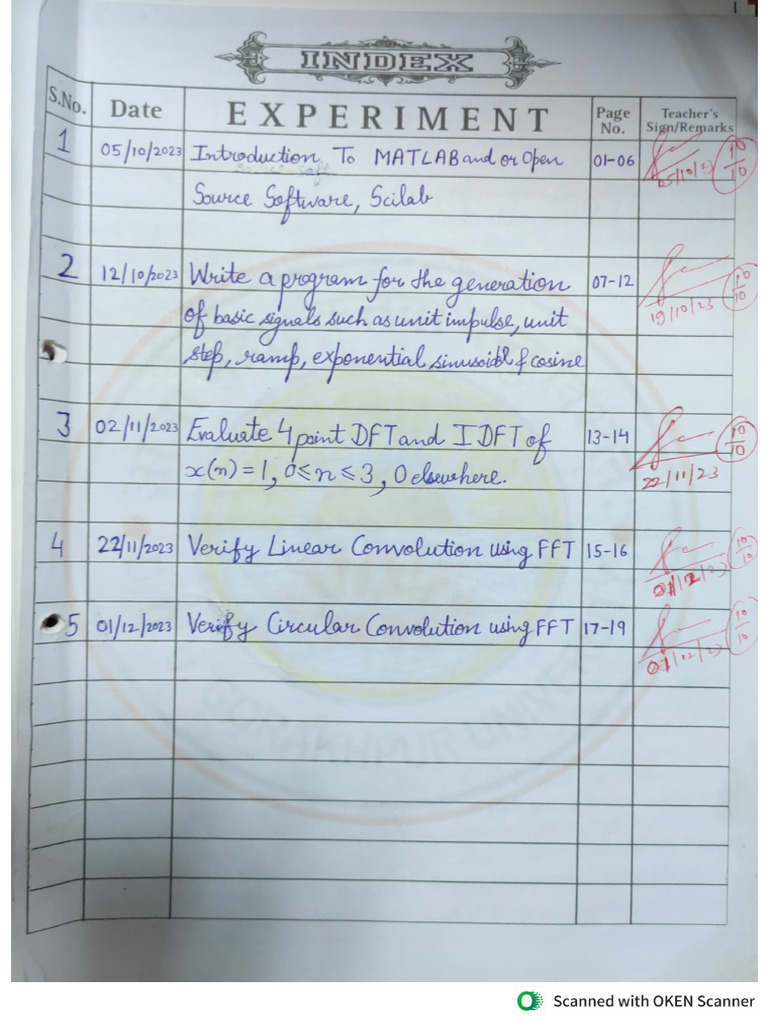 INDEX
S.No. Date EXPERIMENT Page No. Teacher's Sign/Remarks
1 05/10/2023 Introduction To MATLAB and or Open 01-06 10/10
Source Software, Scilab 05/10/23
2 12/10/2023 Write a program for the generation 07-12 10/10
of basic signals such as unit impulse, unit 19/10/23
step, ramp, exponential sinusoidal & cosine
3 02/11/2023 Evaluate 4 point DFT and IDFT of 13-14 10/10
x(n) = 1, 0≤n≤3, 0 elsewhere. 22/11/23
4 22/11/2023 Verify Linear Convolution using FFT 15-16 10/10
01/12/23
5 01/12/2023 Verify Circular Convolution using FFT 17-19 10/10
07/12/23
GORAKHPUR UNIVER
Scanned with OKEN Scanner